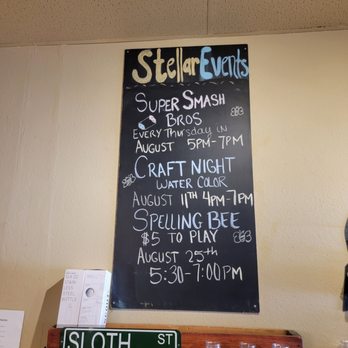 Stellar Events
SUPER SMASH
BROS
EVERY Thursday IN
AUGUST 5PM-7PM
CRAFT NIGHT
WATER COLOR
AUGUST 11TH 4PM-7PM
SPELLING BEE
$5 TO PLAY
AUGUST 25th
5:30-7:00PM
SLOTH ST